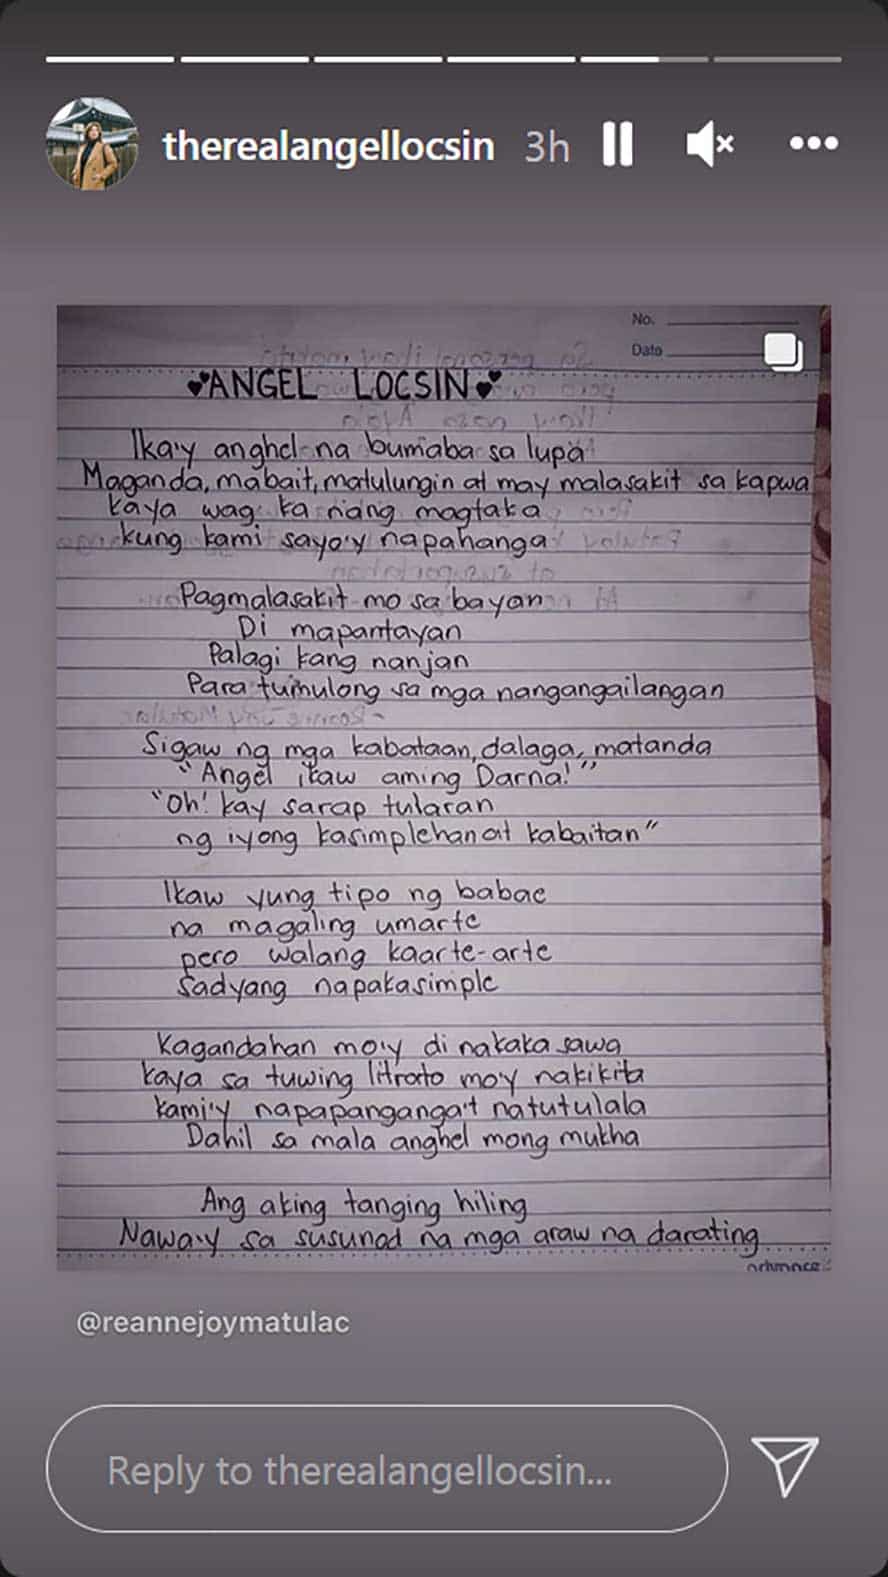 therealangellocsin 3h
No.
Date
ANGEL LOCSIN
Ika'y anghel na bumaba sa lupa
Maganda, mabait, matulungin at may malasakit sa kapwa
kaya wag ka nang magtaka
kung kami sayo'y napahanga
Pagmalasakit mo sa bayan
Di mapantayan
Palagi kang nanjan
Para tumulong sa mga nangangailangan
Sigaw ng mga kabataan, dalaga, matanda
"Angel ikaw aming Darna!"
"Oh! kay sarap tularan
ng iyong kasimplehan at kabaitan"
Ikaw yung tipo ng babae
na magaling umarte
pero walang kaarte-arte
Sadyang napakasimple
Kagandahan mo'y di nakaka sawa
kaya sa tuwing litrato mo'y nakikita
kami'y napapanganga't natutulala
Dahil sa mala anghel mong mukha
Ang aking tanging hiling
Nawa'y sa susunod na mga araw na darating
@reannejoymatulac
Reply to therealangellocsin...